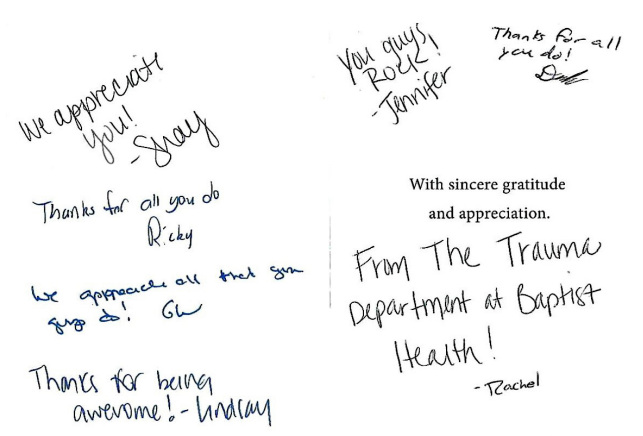 We appreciate
you!
-Shay
Thanks for all you do
Ricky
We appreciate all that you
guys do! GW
Thanks for being
awesome! - Lindsay
You guys
Rock!
-Jennifer
Thanks for all
you do!
With sincere gratitude
and appreciation.
From The Trauma
Department at Baptist
Health!
-Rachel